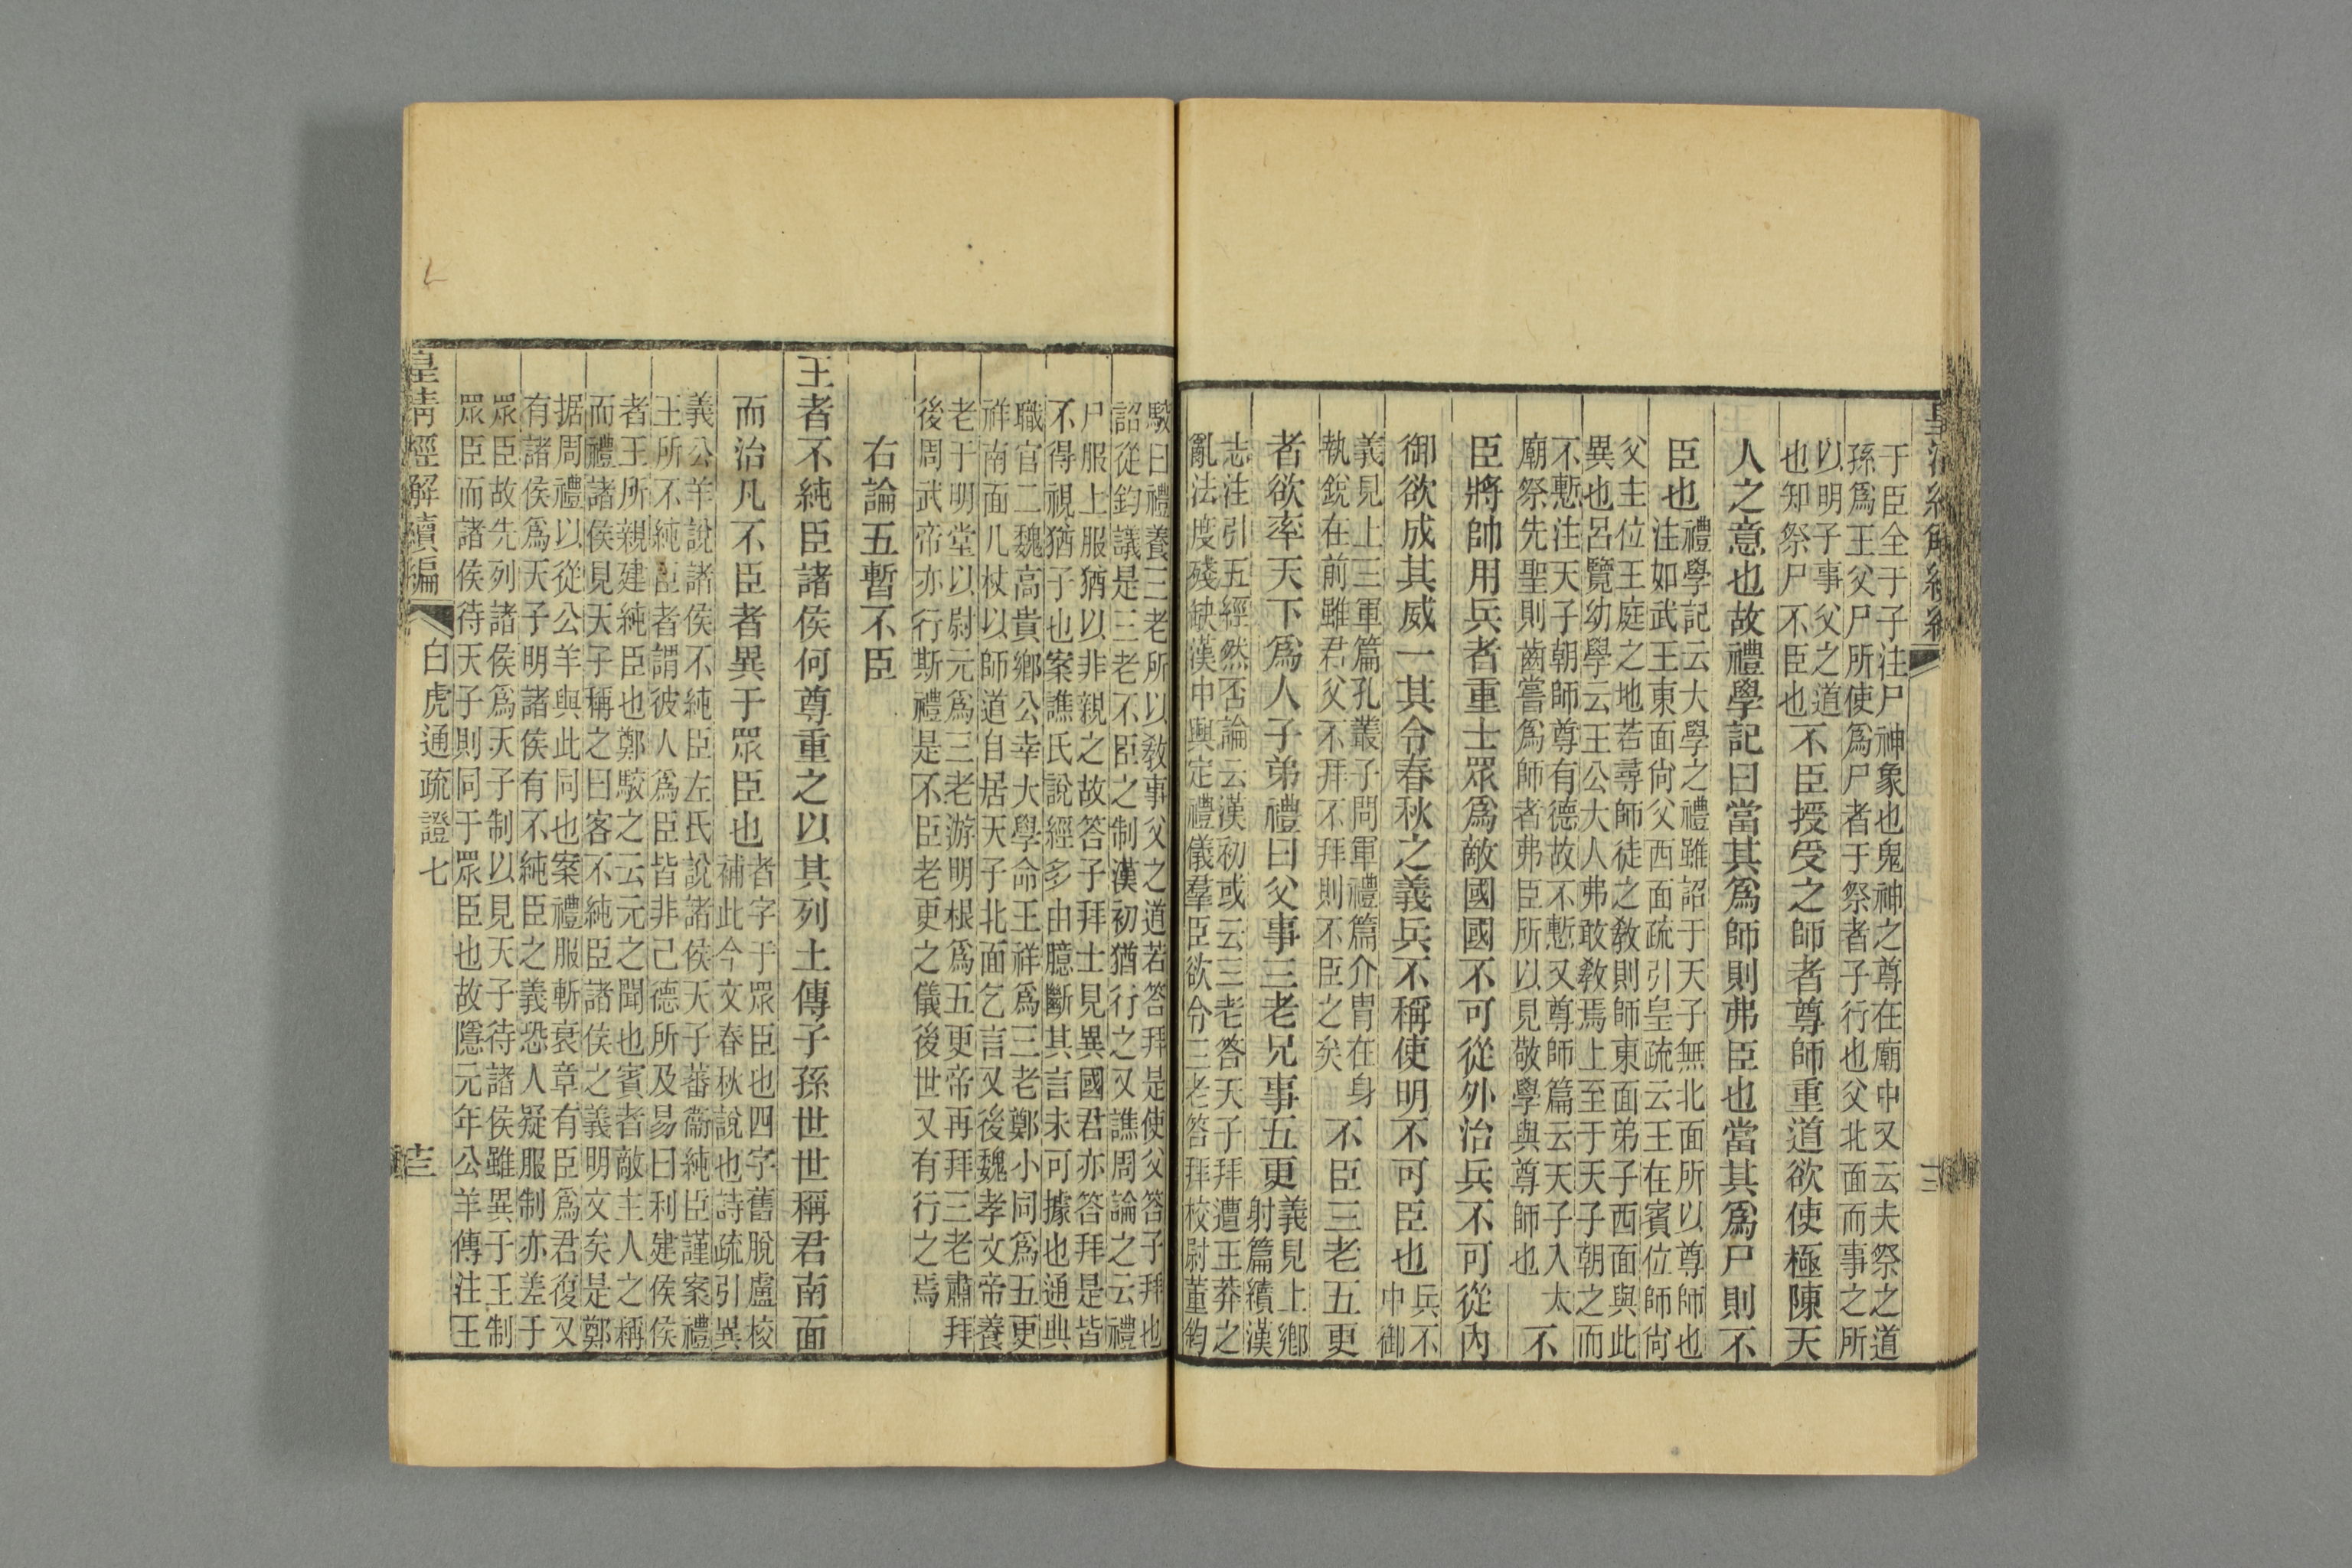 于臣全于子注尸神象也鬼神之尊在廟中又云夫祭之道
孫爲王父尸所使爲尸者于祭者子行也父北面而事之所
以明子事父之道
也知祭尸不臣也
不臣授受之師者尊師重道欲使極陳天
人之意也故禮學記曰當其爲師則弗臣也當其爲尸則不
臣也
禮學記云大學之禮雖詔于天子無北面所以尊師也
注如武王東面尙父西面疏引皇疏云王在賓位師尙
父主位王庭之地若尋師徒之敎則師東面弟子西面與此
異也呂覽幼學云王公大人弗敢敎焉上至于天子朝之而
不慙注天子朝師尊有德故不慙又尊師篇云天子入太
廟祭先聖則齒嘗爲師者弗臣所以見敬學與尊師也
不
臣將帥用兵者重士眾爲敵國國不可從外治兵不可從內
御欲成其威一其令春秋之義兵不稱使明不可臣也
兵不
中御
義見上三軍篇孔叢子問軍禮篇介冑在身
執銳在前雖君父不拜不拜則不臣之矣
不臣三老五更
者欲率天下爲人子弟禮曰父事三老兄事五更
義見上鄉
射篇續漢
志注引五經然否論云漢初或云三老答天子拜遭王莽之
亂法度殘缺漢中興定禮儀羣臣欲令三老答拜校尉董鈞
駮曰禮養三老所以敎事父之道若答拜是使父答子拜也
詔從鈞議是三老不臣之制漢初猶行之又譙周論之云禮
尸服上服猶以非親之故答子拜士見異國君亦答拜是皆
不得視猶子也案譙氏說經多由臆斷其言未可據也通典
職官二魏高貴鄉公幸大學命王祥爲三老鄭小同爲五更
祥南面几杖以師道自居天子北面乞言又後魏孝文帝養
老于明堂以尉元爲三老游明根爲五更帝再拜三老肅拜
後周武帝亦行斯禮是不臣老更之儀後世又有行之焉
右論五暫不臣
王者不純臣諸侯何尊重之以其列土傳子孫世世稱君南面
而治凡不臣者異于眾臣也
者字于眾臣也四字舊脫盧校
補此今文春秋說也詩疏引異
義公羊說諸侯不純臣左氏說諸侯天子蕃衞純臣謹案禮
王所不純臣者謂彼人爲臣皆非己德所及易曰利建侯侯
者王所親建純臣也鄭駮之云元之聞也賓者敵主人之稱
而禮諸侯見天子稱之曰客不純臣諸侯之義明文矣是鄭
据周禮以從公羊與此同也案禮服斬衰章有臣爲君復又
有諸侯爲天子明諸侯有不純臣之義恐人疑服制亦差于
眾臣故先列諸侯爲天子制以見天子待諸侯雖異于王制
眾臣而諸侯待天子則同于眾臣也故隱元年公羊傳注王
皇清經解續編
白虎通疏證七